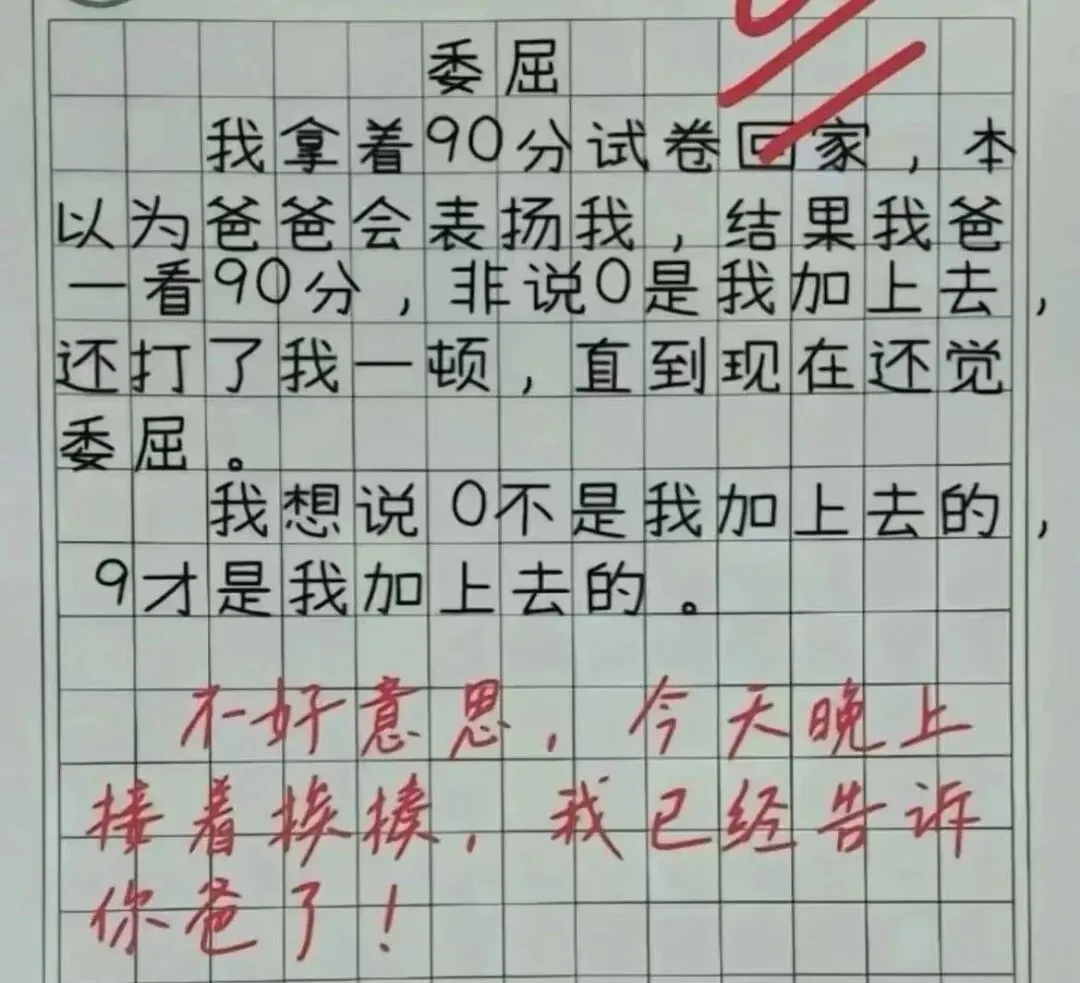 委屈
我拿着90分试卷回家，本
以为爸爸会表扬我，结果我爸
一看90分，非说0是我加上去，
还打了我一顿，直到现在还觉
委屈。
我想说0不是我加上去的，
9才是我加上去的。
不好意思，今天晚上
接着挨揍，我已经告诉
你爸了！